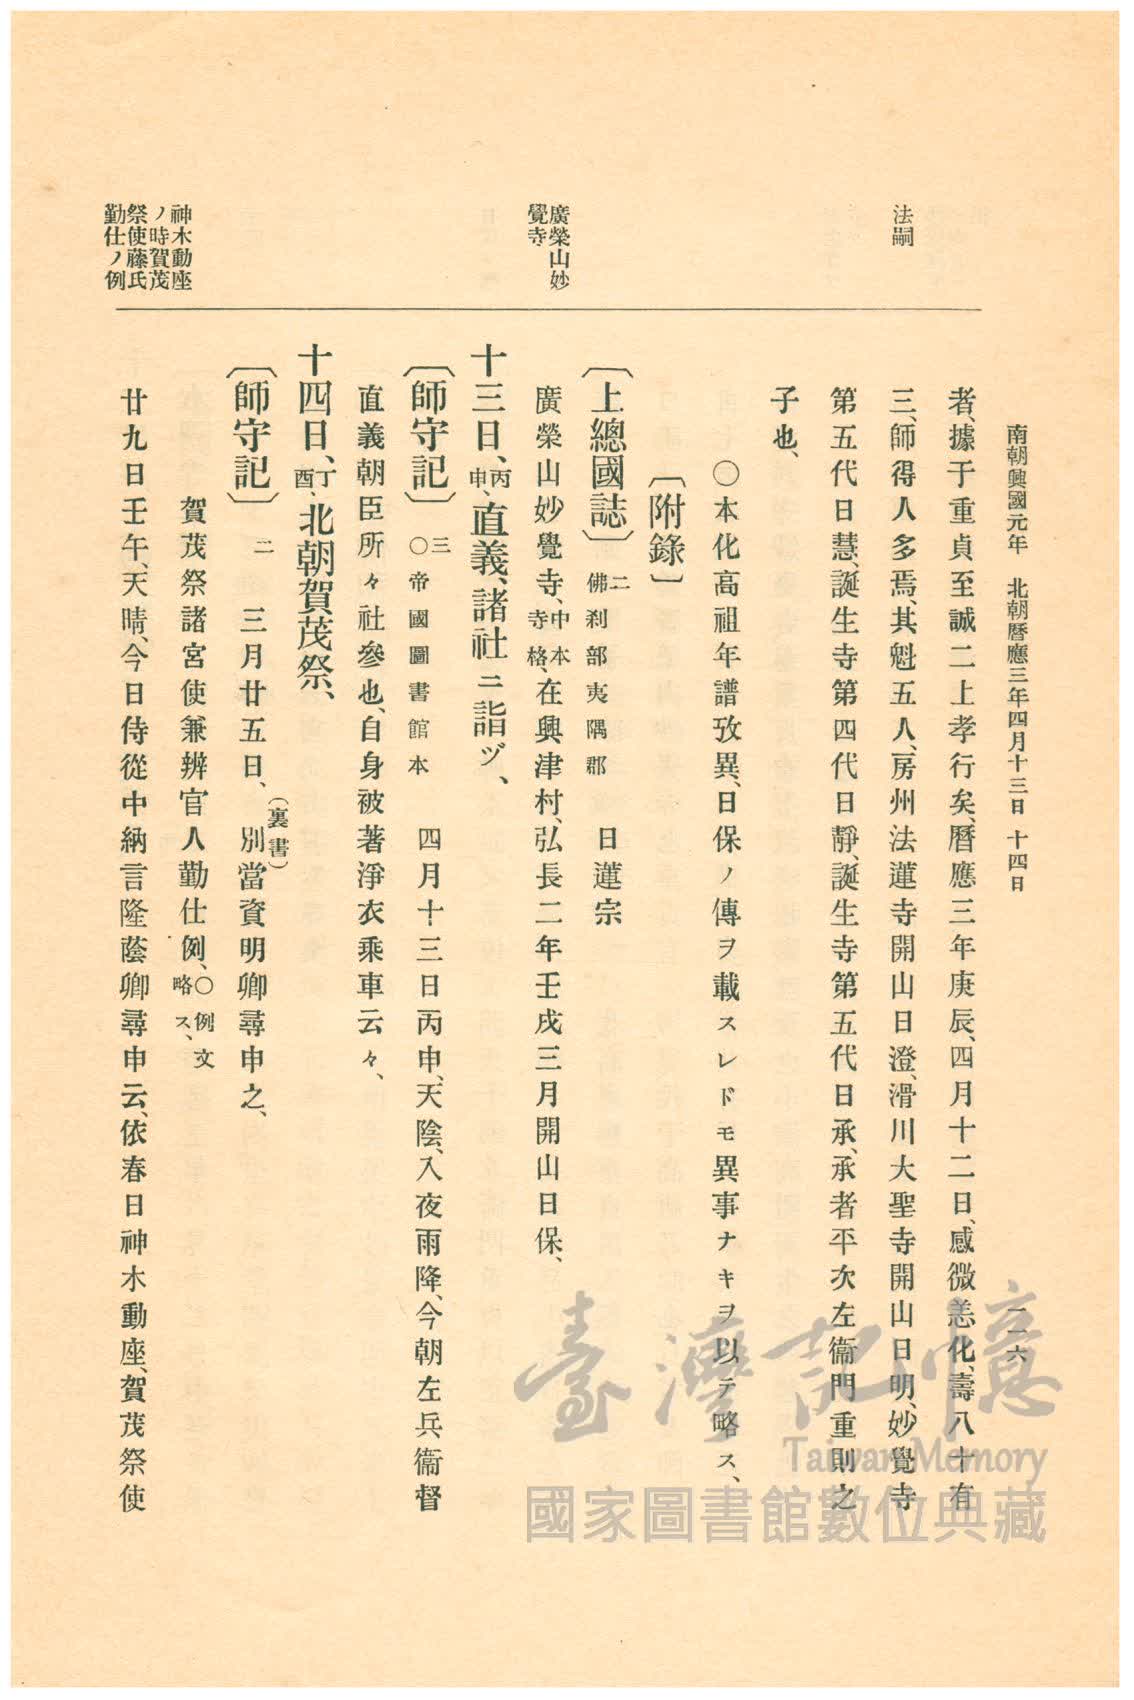 南朝興國元年　北朝曆應三年四月十三日 十四日　一一六
法嗣
廣榮山妙
覺寺
神木動座
ノ時賀茂
祭使藤氏
勤仕ノ例
者、據于重貞至誠二上孝行矣、曆應三年庚辰、四月十二日、感微恙化、壽八十有
三、師得人多焉、其魁五人、房州法蓮寺開山日澄、滑川大聖寺開山日明、妙覺寺
第五代日慧、誕生寺第四代日靜、誕生寺第五代日承、承者平次左衞門重則之
子也、
〔附錄〕
○本化高祖年譜攷異、日保ノ傳ヲ載スレドモ異事ナキヲ以テ略ス、
〔上總國誌〕二　佛刹部夷隅郡　日蓮宗
廣榮山妙覺寺、中本寺格、在興津村、弘長二年壬戌三月開山日保、
十三日、丙申、直義、諸社ニ詣ヅ、
〔師守記〕三　○帝國圖書館本　四月十三日丙申、天陰、入夜雨降、今朝左兵衞督
直義朝臣所々社參也、自身被著淨衣乘車云々、
十四日、丁酉、北朝賀茂祭、
〔師守記〕二　三月廿五日、（裏書）別當資明卿尋申之、
賀茂祭諸宮使兼辨官人勤仕例、○例文略ス、
廿九日壬午、天晴、今日侍從中納言隆蔭卿尋申云、依春日神木動座、賀茂祭使
臺灣記憶
Taiwan Memory
國家圖書館數位典藏